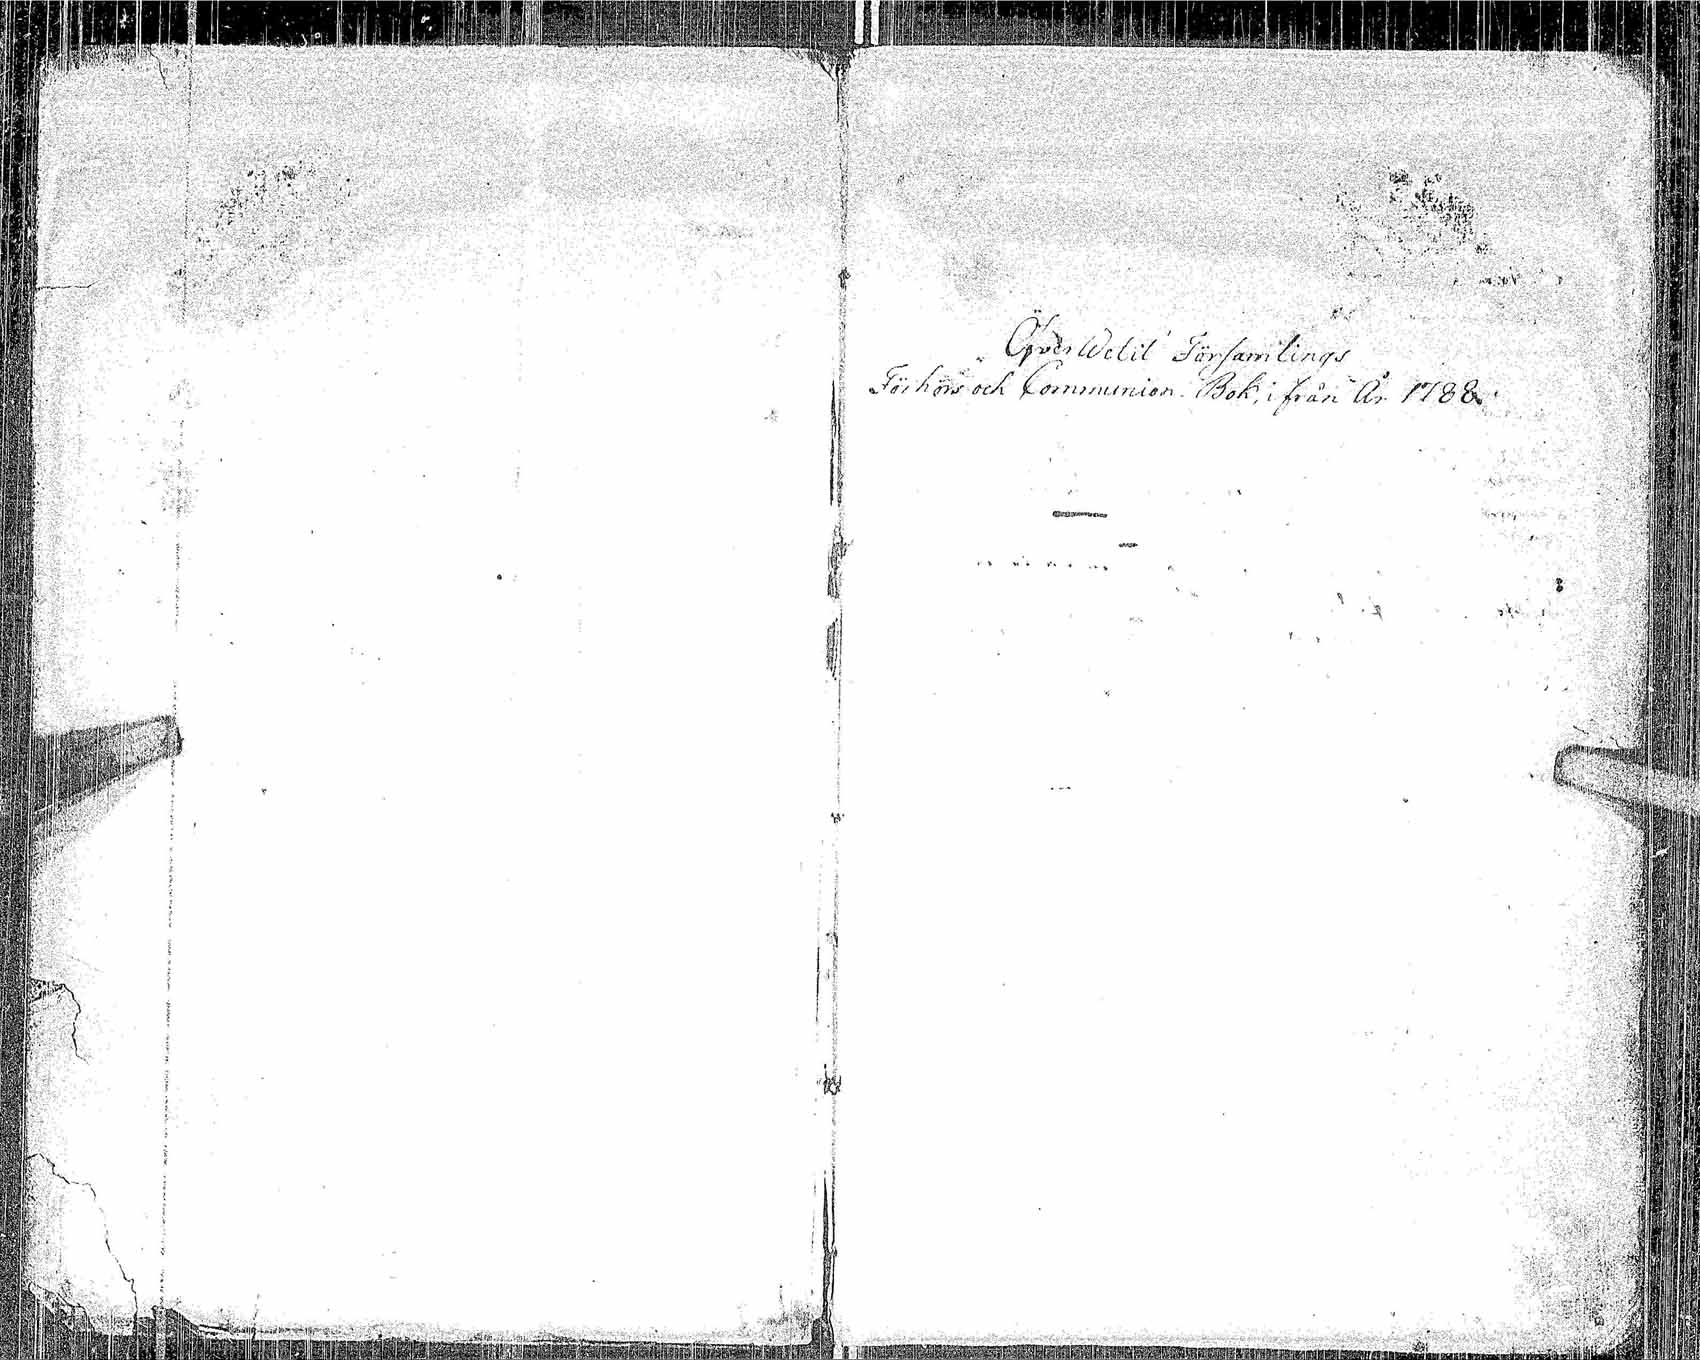 Öfver Wetil Församlings
Förhörs och Communion Bok, ifrån År 1788.